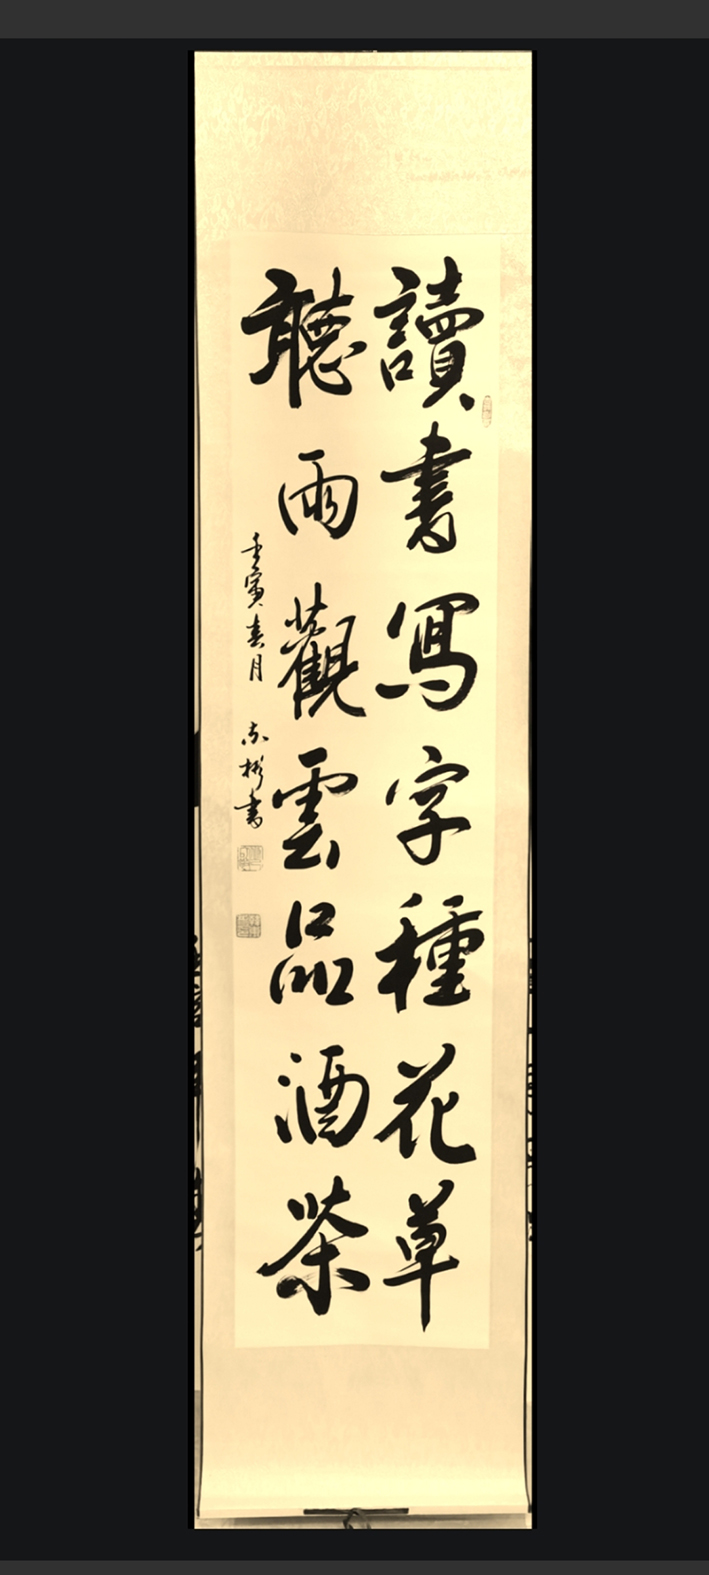 讀書寫字種花草
聽雨觀雲品酒茶
壬寅春月
彬書